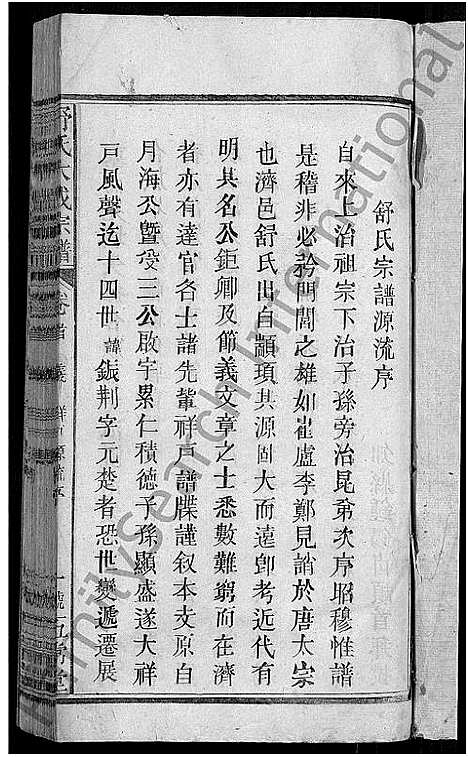 舒氏宗譜源流序
自來上治祖宗下治子孫旁治昆弟次序昭穆惟譜
是稽非必矜門閭之雄如崔盧李鄭見誚於唐太宗
也濟邑舒氏出自顓頊其源固大而遠卽考近代有
明其名公鉅卿及節義文章之士悉數難窮而在濟
者亦有達官各士諸先輩祥戶譜牒謹叙本支原自
月海公暨受三公啟宇累仁積德子孫顯盛遂大祥
戶風聲迄十四世諱鋠荆字元楚者恐世變遞遷展
舒氏大成宗譜 卷首
FamilySearch International